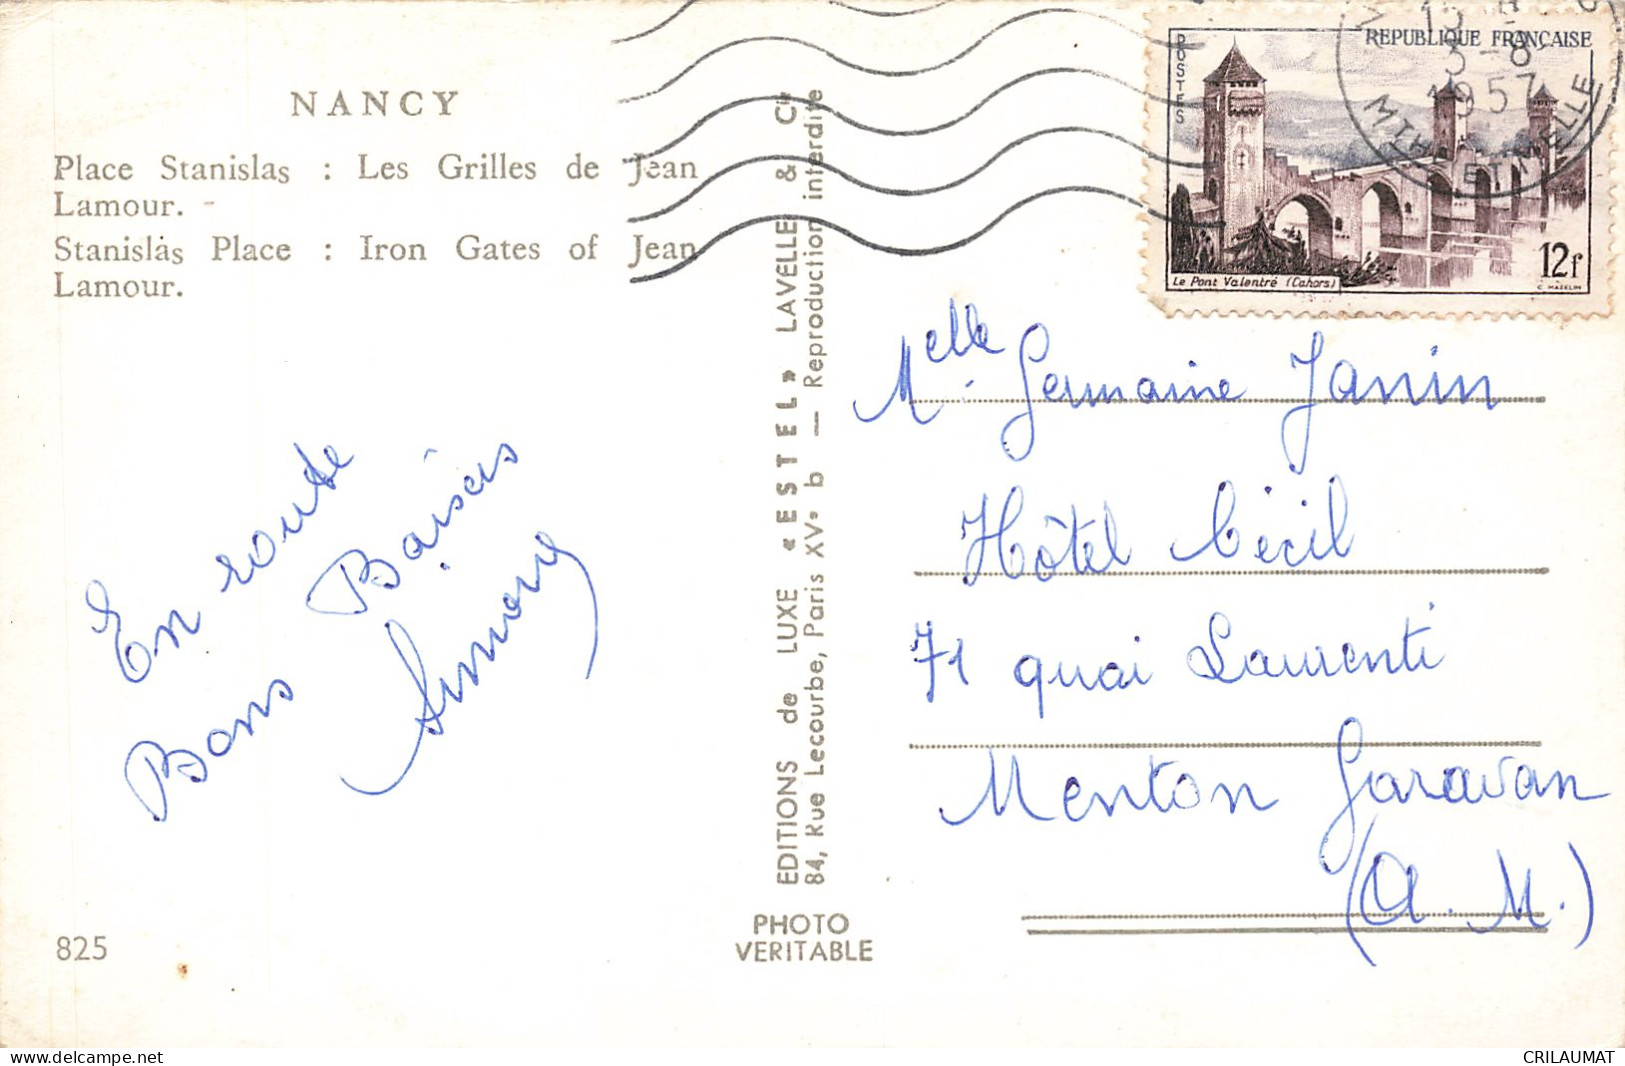 NANCY
Place Stanislas : Les Grilles de Jean
Lamour.
Stanislas Place : Iron Gates of Jean
Lamour.
En route
Bons Baisers
Simone
825
EDITIONS de LUXE « ESTEL » LAVELLE & Cie
84, Rue Lecourbe, Paris XVe b — Reproduction interdite
PHOTO
VERITABLE
POSTES
REPUBLIQUE FRANÇAISE
12f
Le Pont Valentré (Cahors)
C. MAZELIN
3-8
1957
Melle Germaine Janin
Hôtel Cécil
71 quai Laurenti
Menton Garavan
(A.M.)
www.delcampe.net
CRILAUMAT